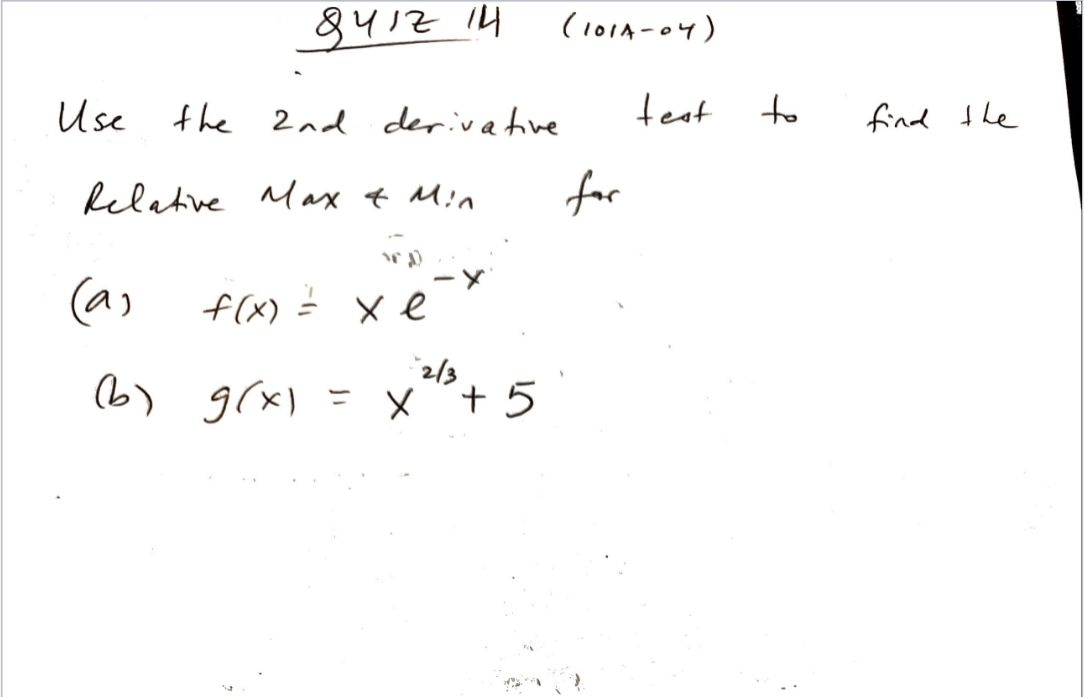 QUIZ 14 (101A-04)
Use the 2nd derivative test to find the
Relative Max & Min for
(a) f(x) = x e^{-x}
(b) g(x) = x^{2/3} + 5